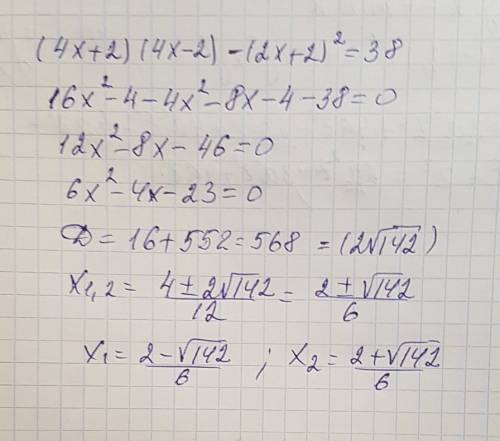 (4x+2)(4x-2)-(2x+2)²=38
16x²-4-4x²-8x-4-38=0
12x²-8x-46=0
6x²-4x-23=0
D=16+552=568=(2√142)
x1,2=(4±2√142)/12=(2±√142)/6
x1=(2-√142)/6; x2=(2+√142)/6